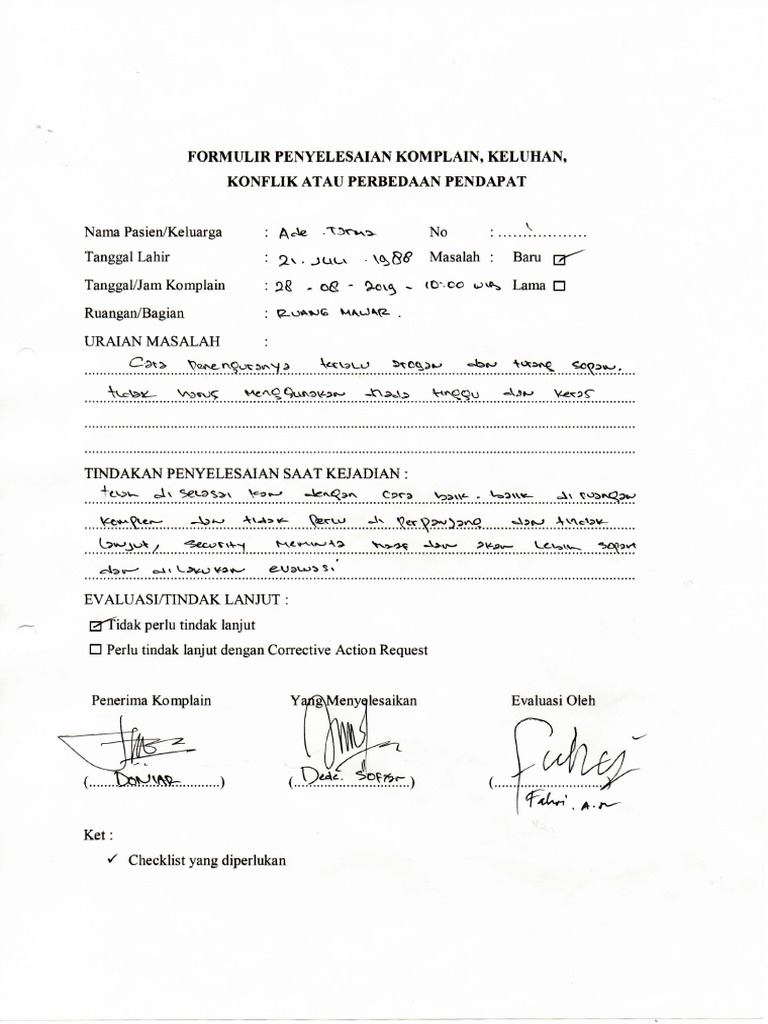 FORMULIR PENYELESAIAN KOMPLAIN, KELUHAN,
KONFLIK ATAU PERBEDAAN PENDAPAT
Nama Pasien/Keluarga : Ade . No : ....................
Tanggal Lahir : 21. Juli . 1988 Masalah : Baru ☑
Tanggal/Jam Komplain : 28 - 08 - 2019 - 10:00 WIB Lama ☐
Ruangan/Bagian : RUANG MAWAR .
URAIAN MASALAH :
Cara terlalu arogan dan kurang sopan.
tidak harus menggunakan nada tinggu dan keras
TINDAKAN PENYELESAIAN SAAT KEJADIAN :
telah di selasai kan dengan cara baik . baik di ruangan
komplen dan tidak perlu di perpanjang dan tindak
lanjut, security meminta maaf dan akan lebih sopan
dan di lakukan evaluasi
EVALUASI/TINDAK LANJUT :
☑ Tidak perlu tindak lanjut
☐ Perlu tindak lanjut dengan Corrective Action Request
Penerima Komplain Yang Menyelesaikan Evaluasi Oleh
(DONIAR) (Dede. SOFIAN) (....................)
Fahri . A.
Ket :
✓ Checklist yang diperlukan